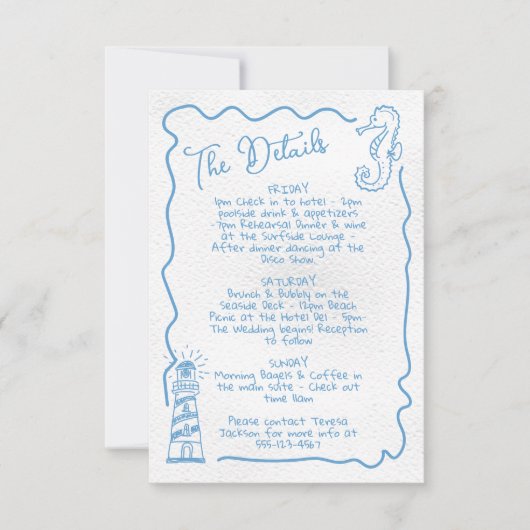 The Details
FRIDAY
1pm Check in to hotel - 2pm
poolside drink & appetizers
-7pm Rehearsal Dinner & wine
at the Surfside Lounge -
After dinner dancing at the
Disco Show.
SATURDAY
Brunch & Bubbly on the
Seaside Deck - 12pm Beach
Picnic at the Hotel Del - 5pm-
The Wedding begins! Reception
to follow
SUNDAY
Morning Bagels & Coffee in
the main suite - Check out
time 11am
Please contact Teresa
Jackson for more info at
555-123-4567